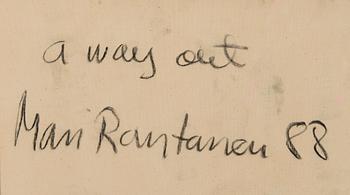 a way out
Mari Rantanen 88